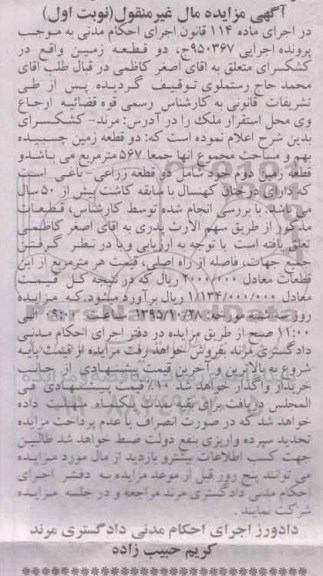 آگهی مزایده مال غیرمنقول(نوبت اول)
در اجرای ماده ۱۱۴ قانون اجرای احکام مدنی به موجب
پرونده اجرایی ۹۵۰۳۶۷ج، دو قطعه زمین واقع در
کشکسرای متعلق به اقای اصغر کاظمی در قبال طلب اقای
محمد حاج رستملوی توقیف گردیده پس از طی
تشریفات قانونی به کارشناس رسمی قوه قضائیه ارجاع
وی محل استقرار ملک را در آدرس: مرند- کشکسرای
بدین شرح اعلام نموده است که: دو قطعه زمین چسبیده
بهم و مساحت مجموع انها جمعا ۵۶۷ مترمربع می باشد و
قطعه زمین دوم خود شامل دو قطعه زراعی- باغی است
که دارای درختان کهنسال با سابقه کاشت بیش از ۵۰ سال
می باشد. با بررسی انجام شده توسط کارشناس، قطعات
مذکور از طریق سهم الارث پدری به اقای اصغر کاظمی
تعلق یافته است با توجه به ارزیابی و با در نظر گرفتن
جمیع جهات، فاصله از راه اصلی، قیمت هر مترمربع از این
قطعات معادل ۲۰۰۰/۰۰۰ ریال که در نتیجه کل قیمت
معادل ۱/۱۳۴/۰۰۰/۰۰۰ ریال برآورد میشود.که مزایده
روز سه شنبه مورخه ۱۳۹۵/۱۰/۷ از ساعت ۰۹:۰۰ الی
۱۱:۰۰ صبح از طریق مزایده در دفتر اجرای احکام مدنی
دادگستری مرند بفروش خواهد رفت مزایده از قیمت پایه
شروع به بالاترین و آخرین قیمت پیشنهادی از جانب
خریدار واگذار خواهد شد ۱۰٪ قیمت پیشنهادی فی
المجلس دریافت برای بقیه مدت یکماه مهلت داده
خواهد شد که در صورت انصراف یا عدم پرداخت مزایده
تجدید سپرده واریزی بنفع دولت ضبط خواهد شد طالبین
جهت کسب اطلاعات بیشتر و بازدید از مال مورد مزایده
می توانند پنج روز قبل از موعد مزایده به دفتر اجرای
احکام مدنی دادگستری مرند مراجعه و در جلسه مزایده
شرکت نمایند.
دادورز اجرای احکام مدنی دادگستری مرند
کریم حبیب زاده